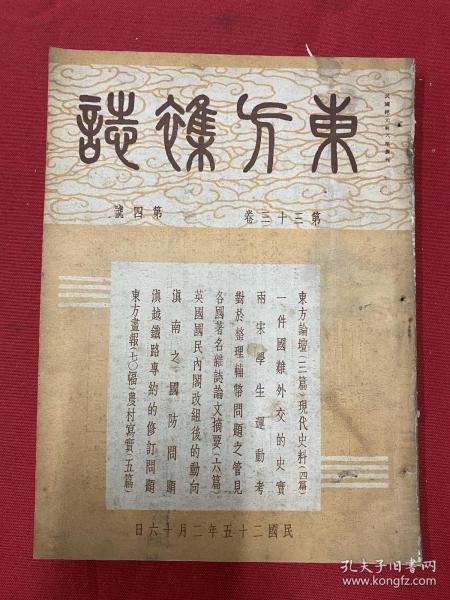 東方雜誌
第三十三卷　第四號
東方論壇(三篇)現代史料(四篇)
一件國難外交的史實
兩宋學生運動考
對於整理輔幣問題之管見
各國著名雜誌論文摘要(十六篇)
英國國民內閣改組後的動向
滇南之國防問題
滇越鐵路專約的修訂問題
東方畫報(七〇幅)農村寫實(五篇)
民國二十五年二月十六日
孔夫子旧书网
www.kongfz.com